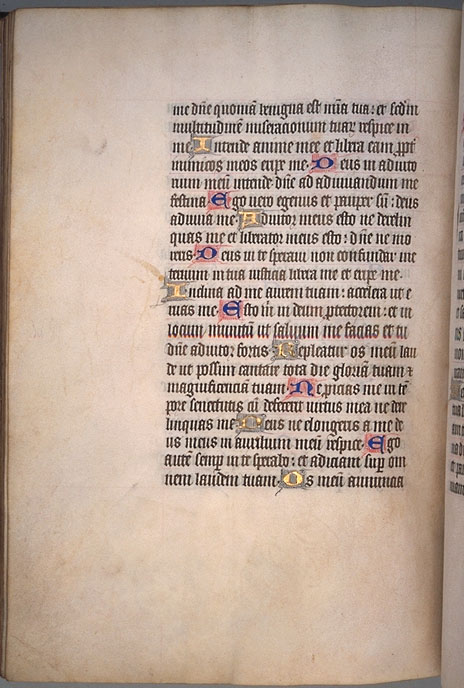 me dn̄e quoniā benigna est mīa tua: et scd̄m
multitudinē miseracionum tuaꝝ respice in
me Intende anime mee et libra eam ꝓpt̄
inimicos meos eripe me· Deus in adiuto
rium meū intende dn̄e ad adiuuandum me
festina Ego uero egenus et pauper sū: deus
adiuua me· Adiutor meus esto ne derelin
quas me et liberator meus esto: dn̄e ne mo
reris· Deus in te speraui non confundar in e
ternum in tua iusticia libra me et eripe me·
Inclina ad me aurem tuam: accelera ut e
ruas me· Esto m̄ in deum ꝓtectorem: et in
locum munitū ut saluum me facias et tu
dn̄e adiutor fortis· Repleatur os meū lau
de ut possim cantare tota die gloriā tuam ⁊
magnificenciam tuam· Ne ꝓicias me in tē
pore senectutis cū defecerit uirtus mea ne dere
linquas me· Deus ne elongeris a me de
us meus in auxilium meū respice· Ego
autē semꝑ in te sperabo: et adiciam suꝑ om
nem laudem tuam· Os meū annuncia